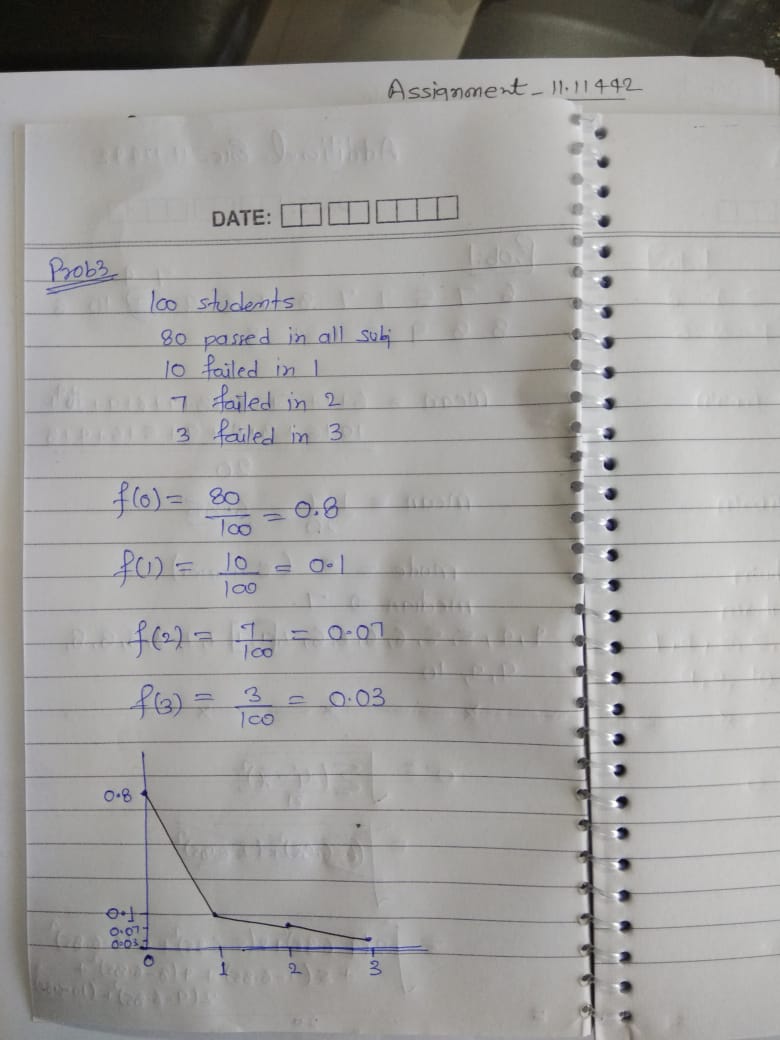 Assignment - 11.11442
DATE:
Prob3
100 students
80 passed in all subj
10 failed in 1
7 failed in 2
3 failed in 3
f(0) = 80/100 = 0.8
f(1) = 10/100 = 0.1
f(2) = 7/100 = 0.07
f(3) = 3/100 = 0.03
0.8
0.1
0.07
0.03
0 1 2 3